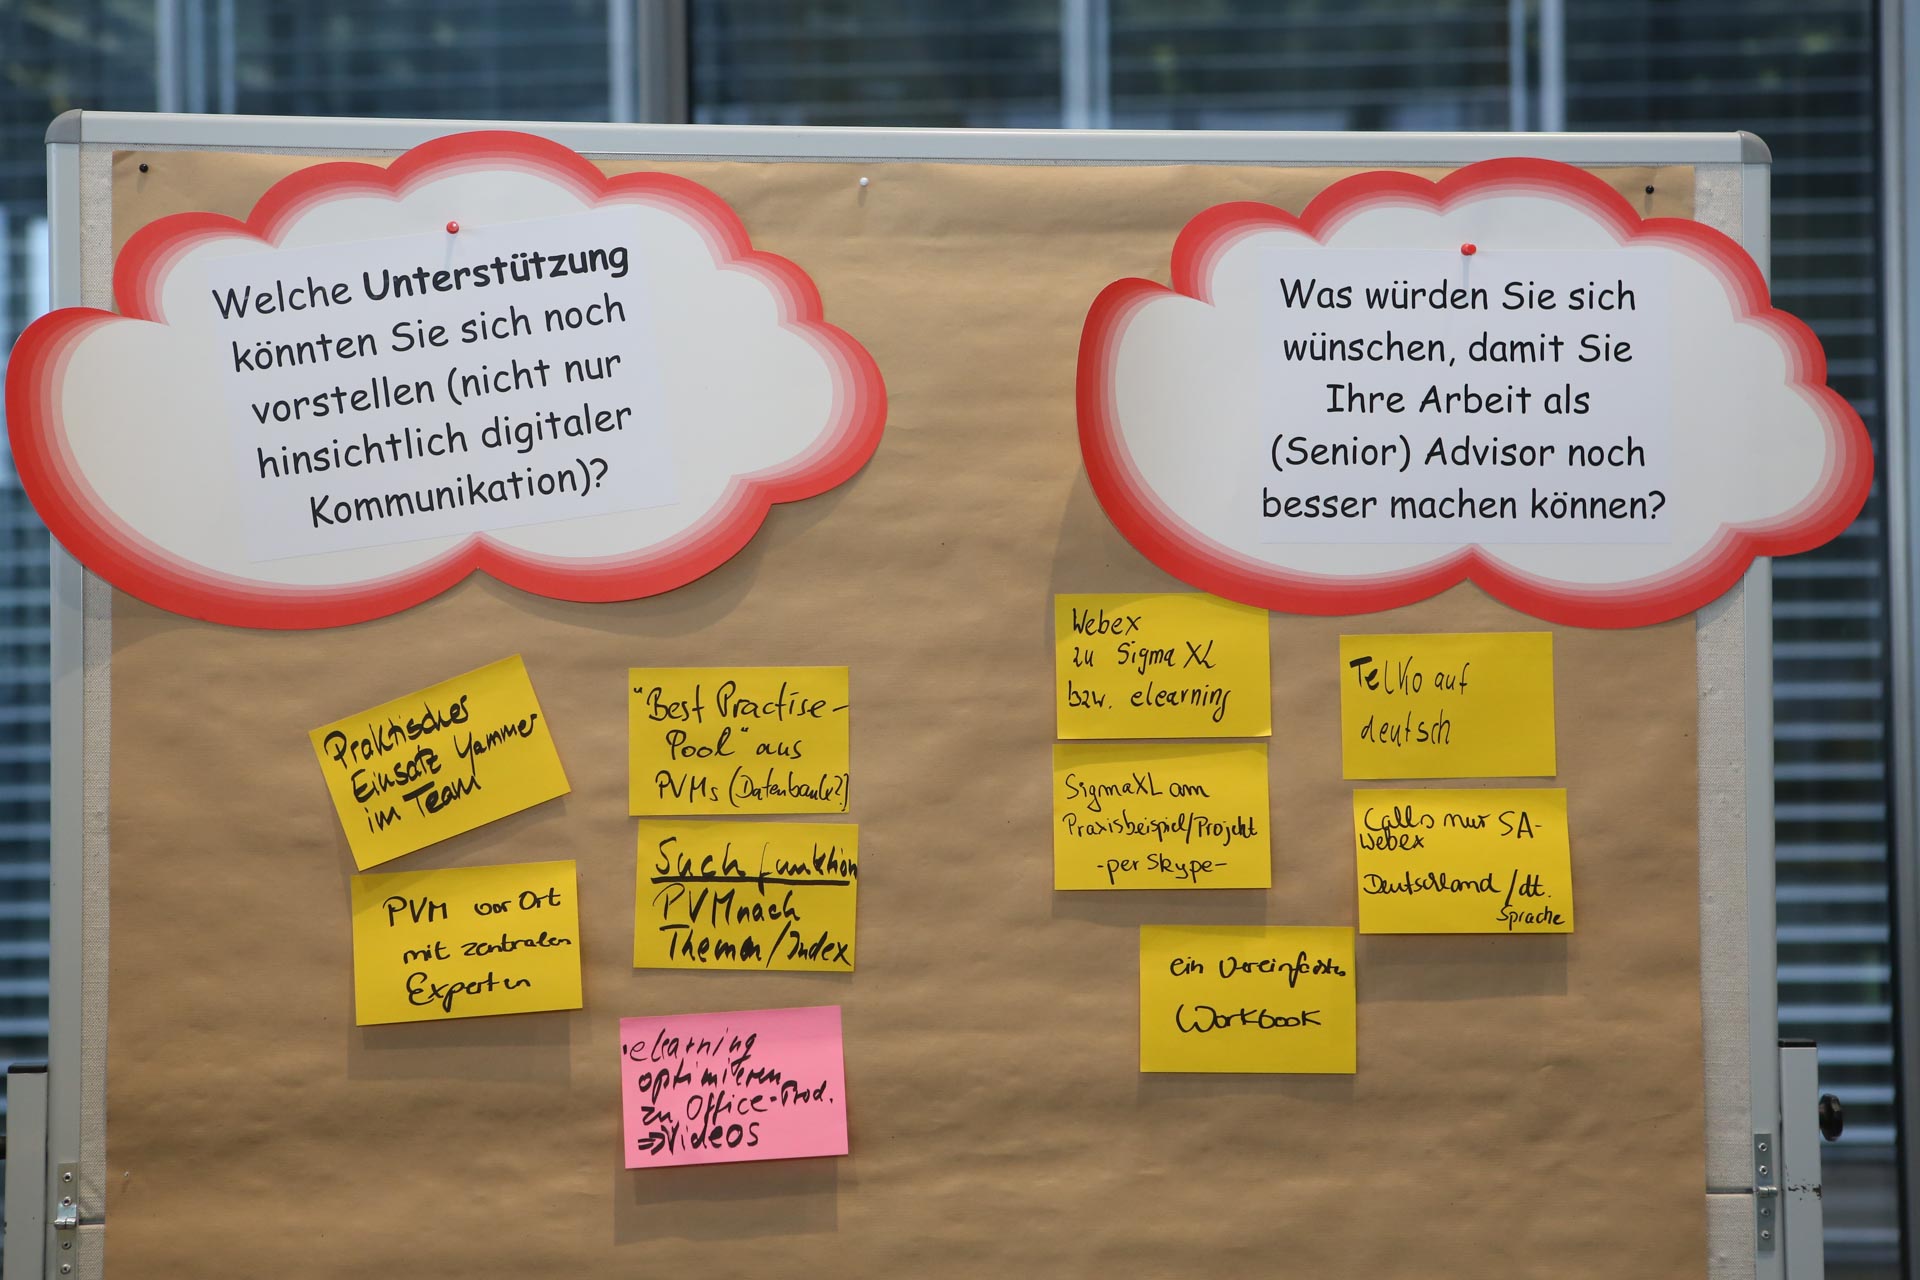 Welche Unterstützung
könnten Sie sich noch
vorstellen (nicht nur
hinsichtlich digitaler
Kommunikation)?
Praktisches
Einsatz Yammer
im Team
PVM vor Ort
mit zentralen
Experten
"Best Practise-
Pool" aus
PVMs (Datenbank?)
Suchfunktion
PVM nach
Themen/Index
elearning
optimieren
zu Office-Prod.
⇒ Videos
Was würden Sie sich
wünschen, damit Sie
Ihre Arbeit als
(Senior) Advisor noch
besser machen können?
Webex
zu Sigma XL
bzw. elearning
SigmaXL am
Praxisbeispiel/Projekt
-per Skype-
TelKo auf
deutsch
Calls nur SA-
Webex
Deutschland/dt.
Sprache
ein vereinfachtes
Workbook